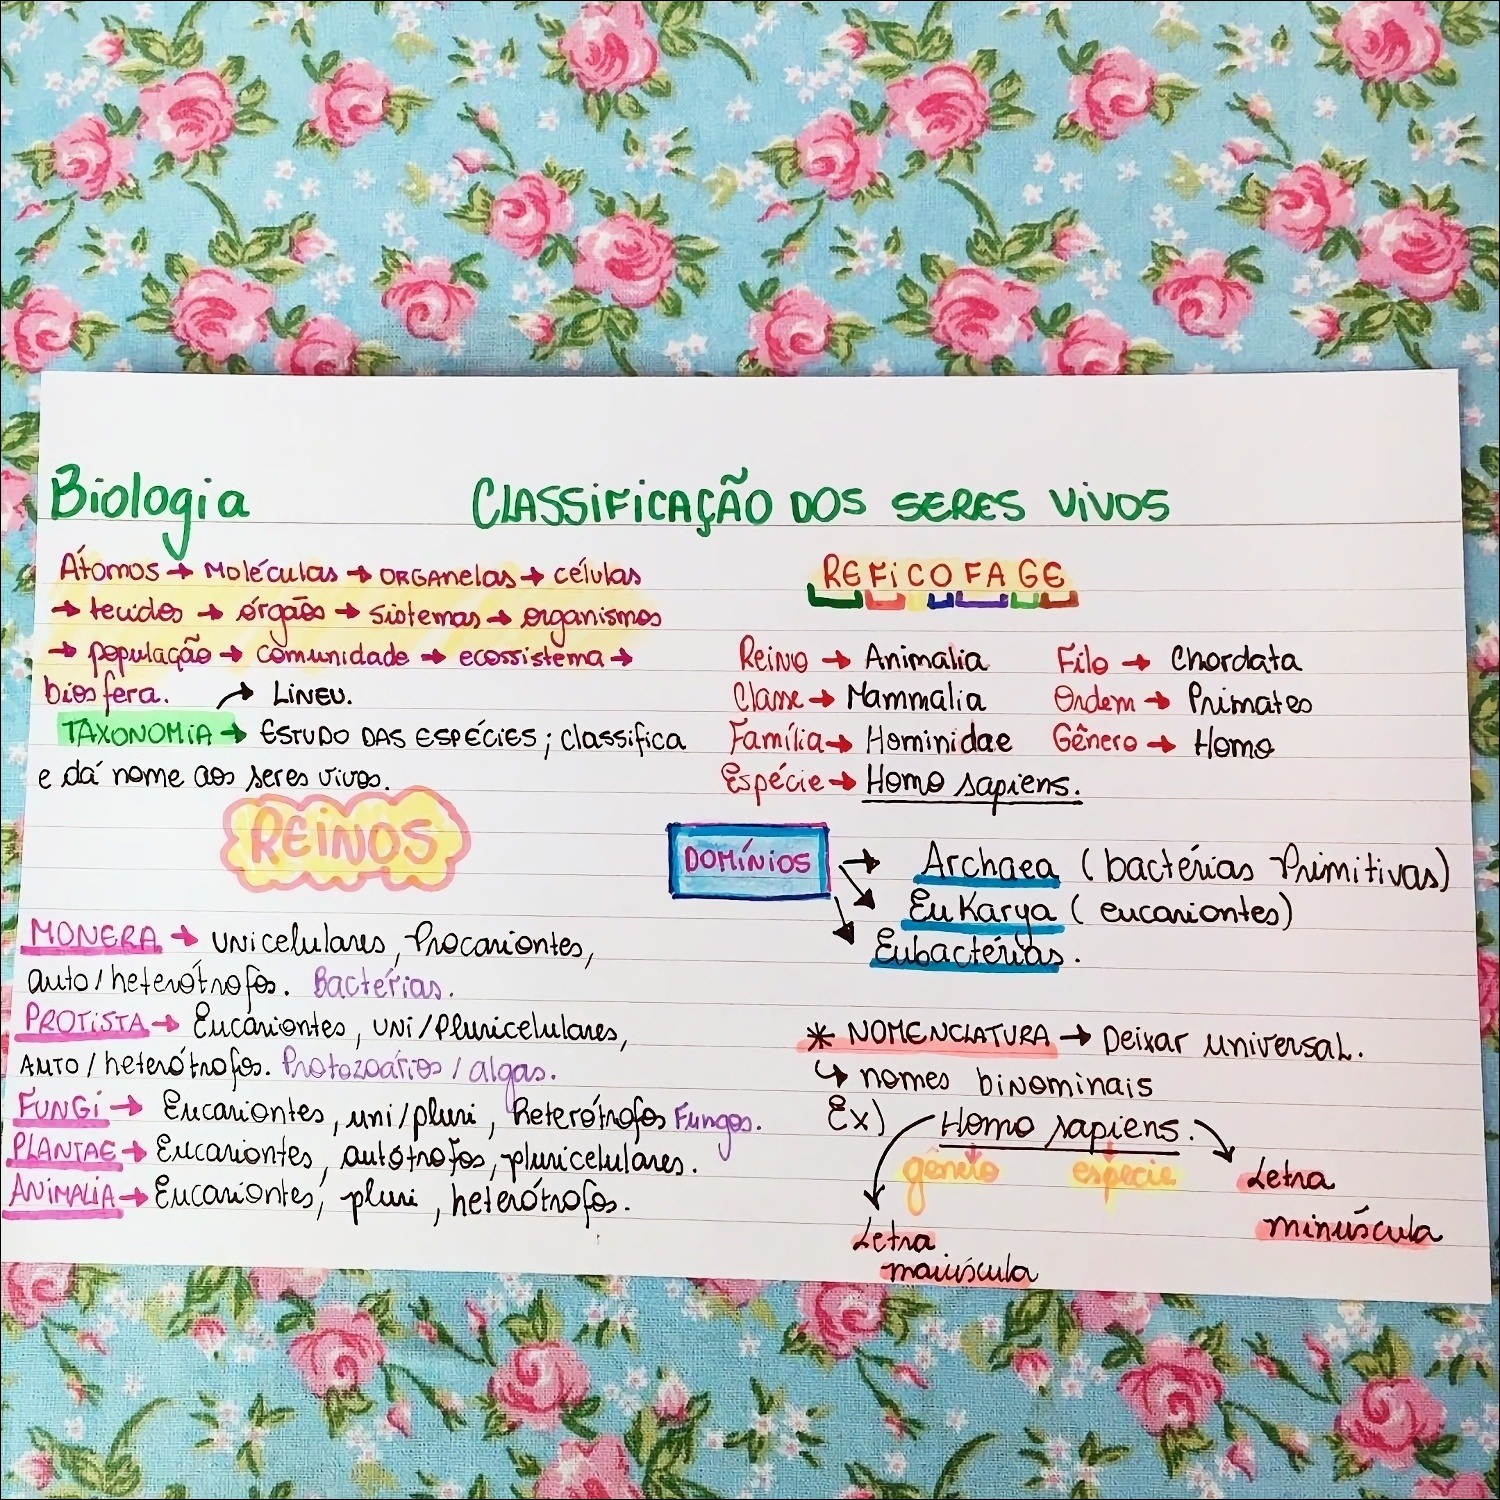 Biologia
CLASSIFICAÇÃO DOS SERES VIVOS
Átomos → Moléculas → ORGANELAS → células
→ tecidos → órgãos → sistemas → organismos
→ população → comunidade → ecossistema →
biosfera.
→ LINEU.
TAXONOMIA → ESTUDO DAS ESPÉCIES; classifica
e dá nome aos seres vivos.
REINOS
MONERA → unicelulares, Procariontes,
auto/heterótrofos. Bactérias.
PROTISTA → Eucariontes, uni/Pluricelulares,
AUTO/heterótrofos. Protozoários/algas.
FUNGI → Eucariontes, uni/pluri, heterótrofos Fungos.
PLANTAE → Eucariontes, autótrofos, pluricelulares.
ANIMALIA → Eucariontes, pluri, heterótrofos.
REFICOFAGE
Reino → Animalia Filo → Chordata
Classe → Mammalia Ordem → Primates
Família → Hominidae Gênero → Homo
Espécie → Homo sapiens.
DOMÍNIOS → Archaea (bactérias Primitivas)
EuKarya (eucariontes)
Eubactérias.
* NOMENCLATURA → Deixar universal.
↳ nomes binominais
Ex) Homo sapiens.
gênero espécie
Letra
minúscula
Letra
maiúscula